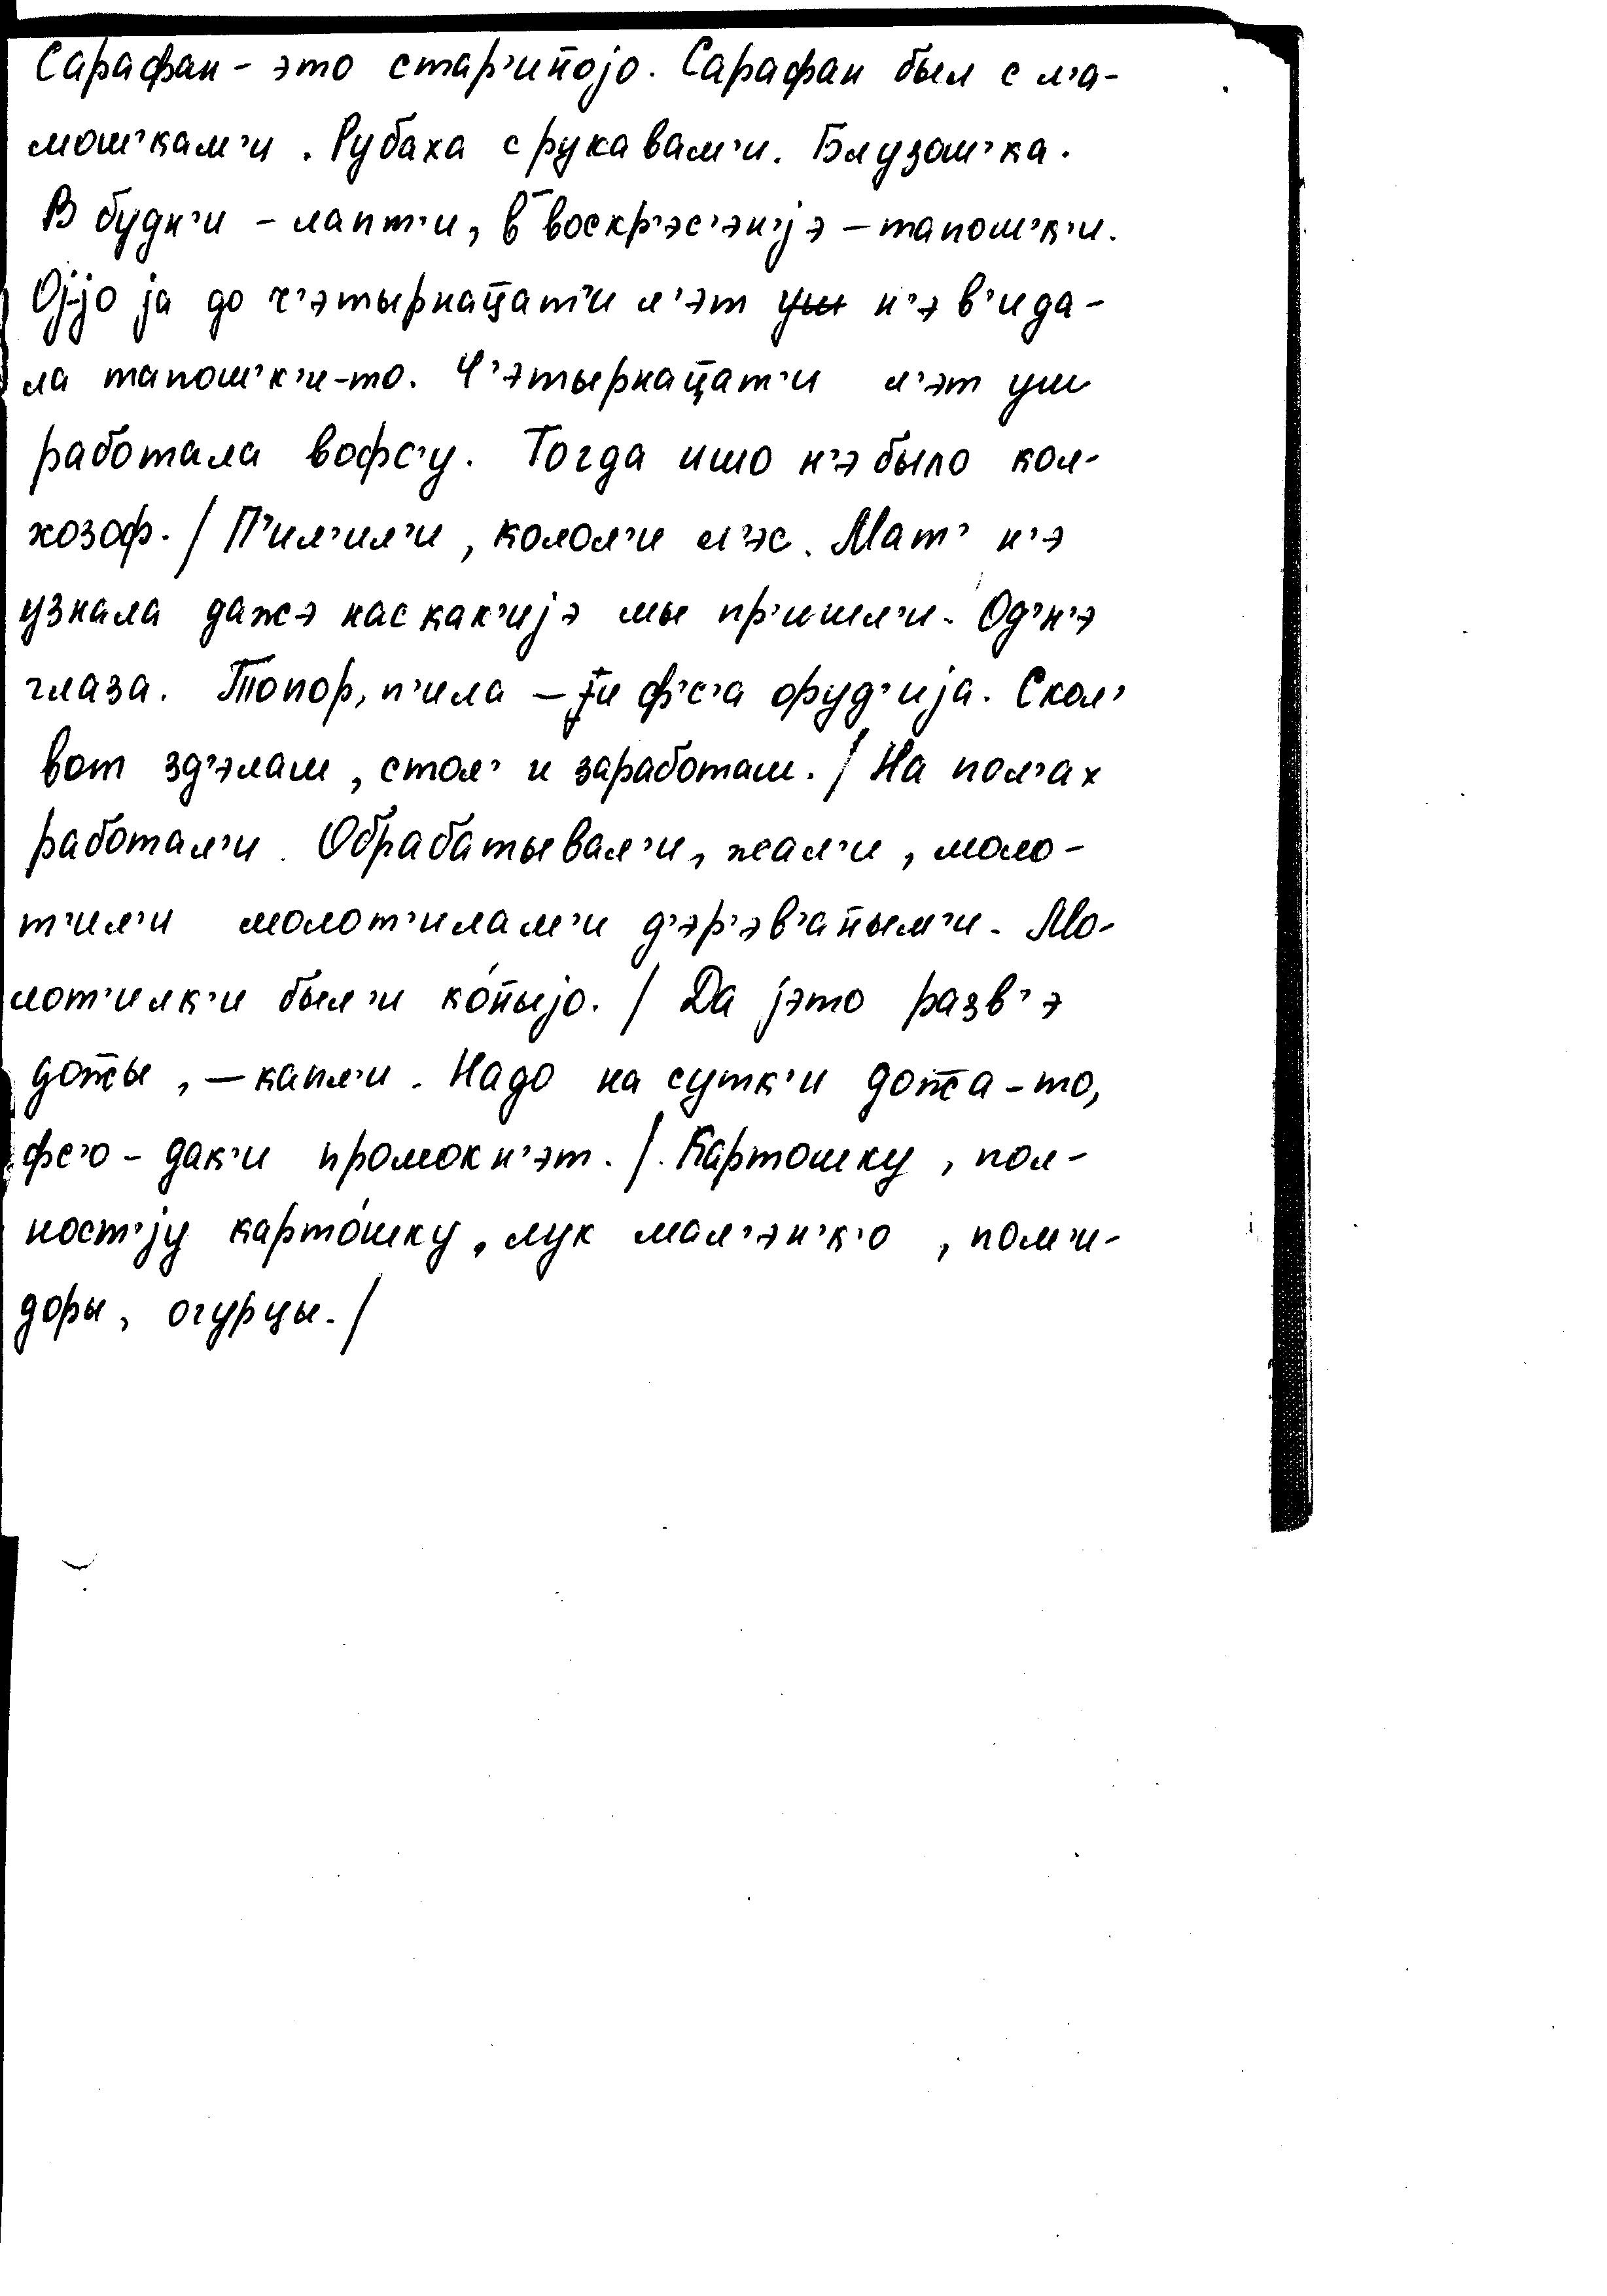 Сарафан - это стар'ин̄ојо. Сарафан был с л'а-
мош'кам'и. Рубаха с рукавам'и. Блузош'ка.
В будн'и - лапт'и, в̄ воскр'эс'эн'јэ - тапош'к'и.
Ој-јо ја до ч'этырнац̄ат'и л'эт н'э в'ида-
ла тапош'к'и-то. Ч'этырнац̄ат'и л'эт уш
работала вофс'у. Тогда ишо н'э было кол-
хозоф. / П'ил'ил'и, колол'и л'эс. Мат' н'э
узнала дажэ нас как'ијэ мы пр'ишл'и. Од'н'э
глаза. Топор, п'ила - и ф'с'а оруд'ија. Скол'
вот зд'элаш, стол' и заработаш. / На пол'ах
работал'и. Обрабатывал'и, жал'и, моло-
т'ил'и молот'илам'и д'эр'эв'ан̄ым'и. Мо-
лот'илк'и был'и ко́н̄ыјо. / Да јэто разв'э
дож̄ы, - капл'и. Надо на сутк'и дож̄а-то,
фс'о - дак'и промокн'эт. /. Картошку, пол-
ност'ју карто́шку, лук мал'эн'к'о, пом'и-
доры, огурцы. /